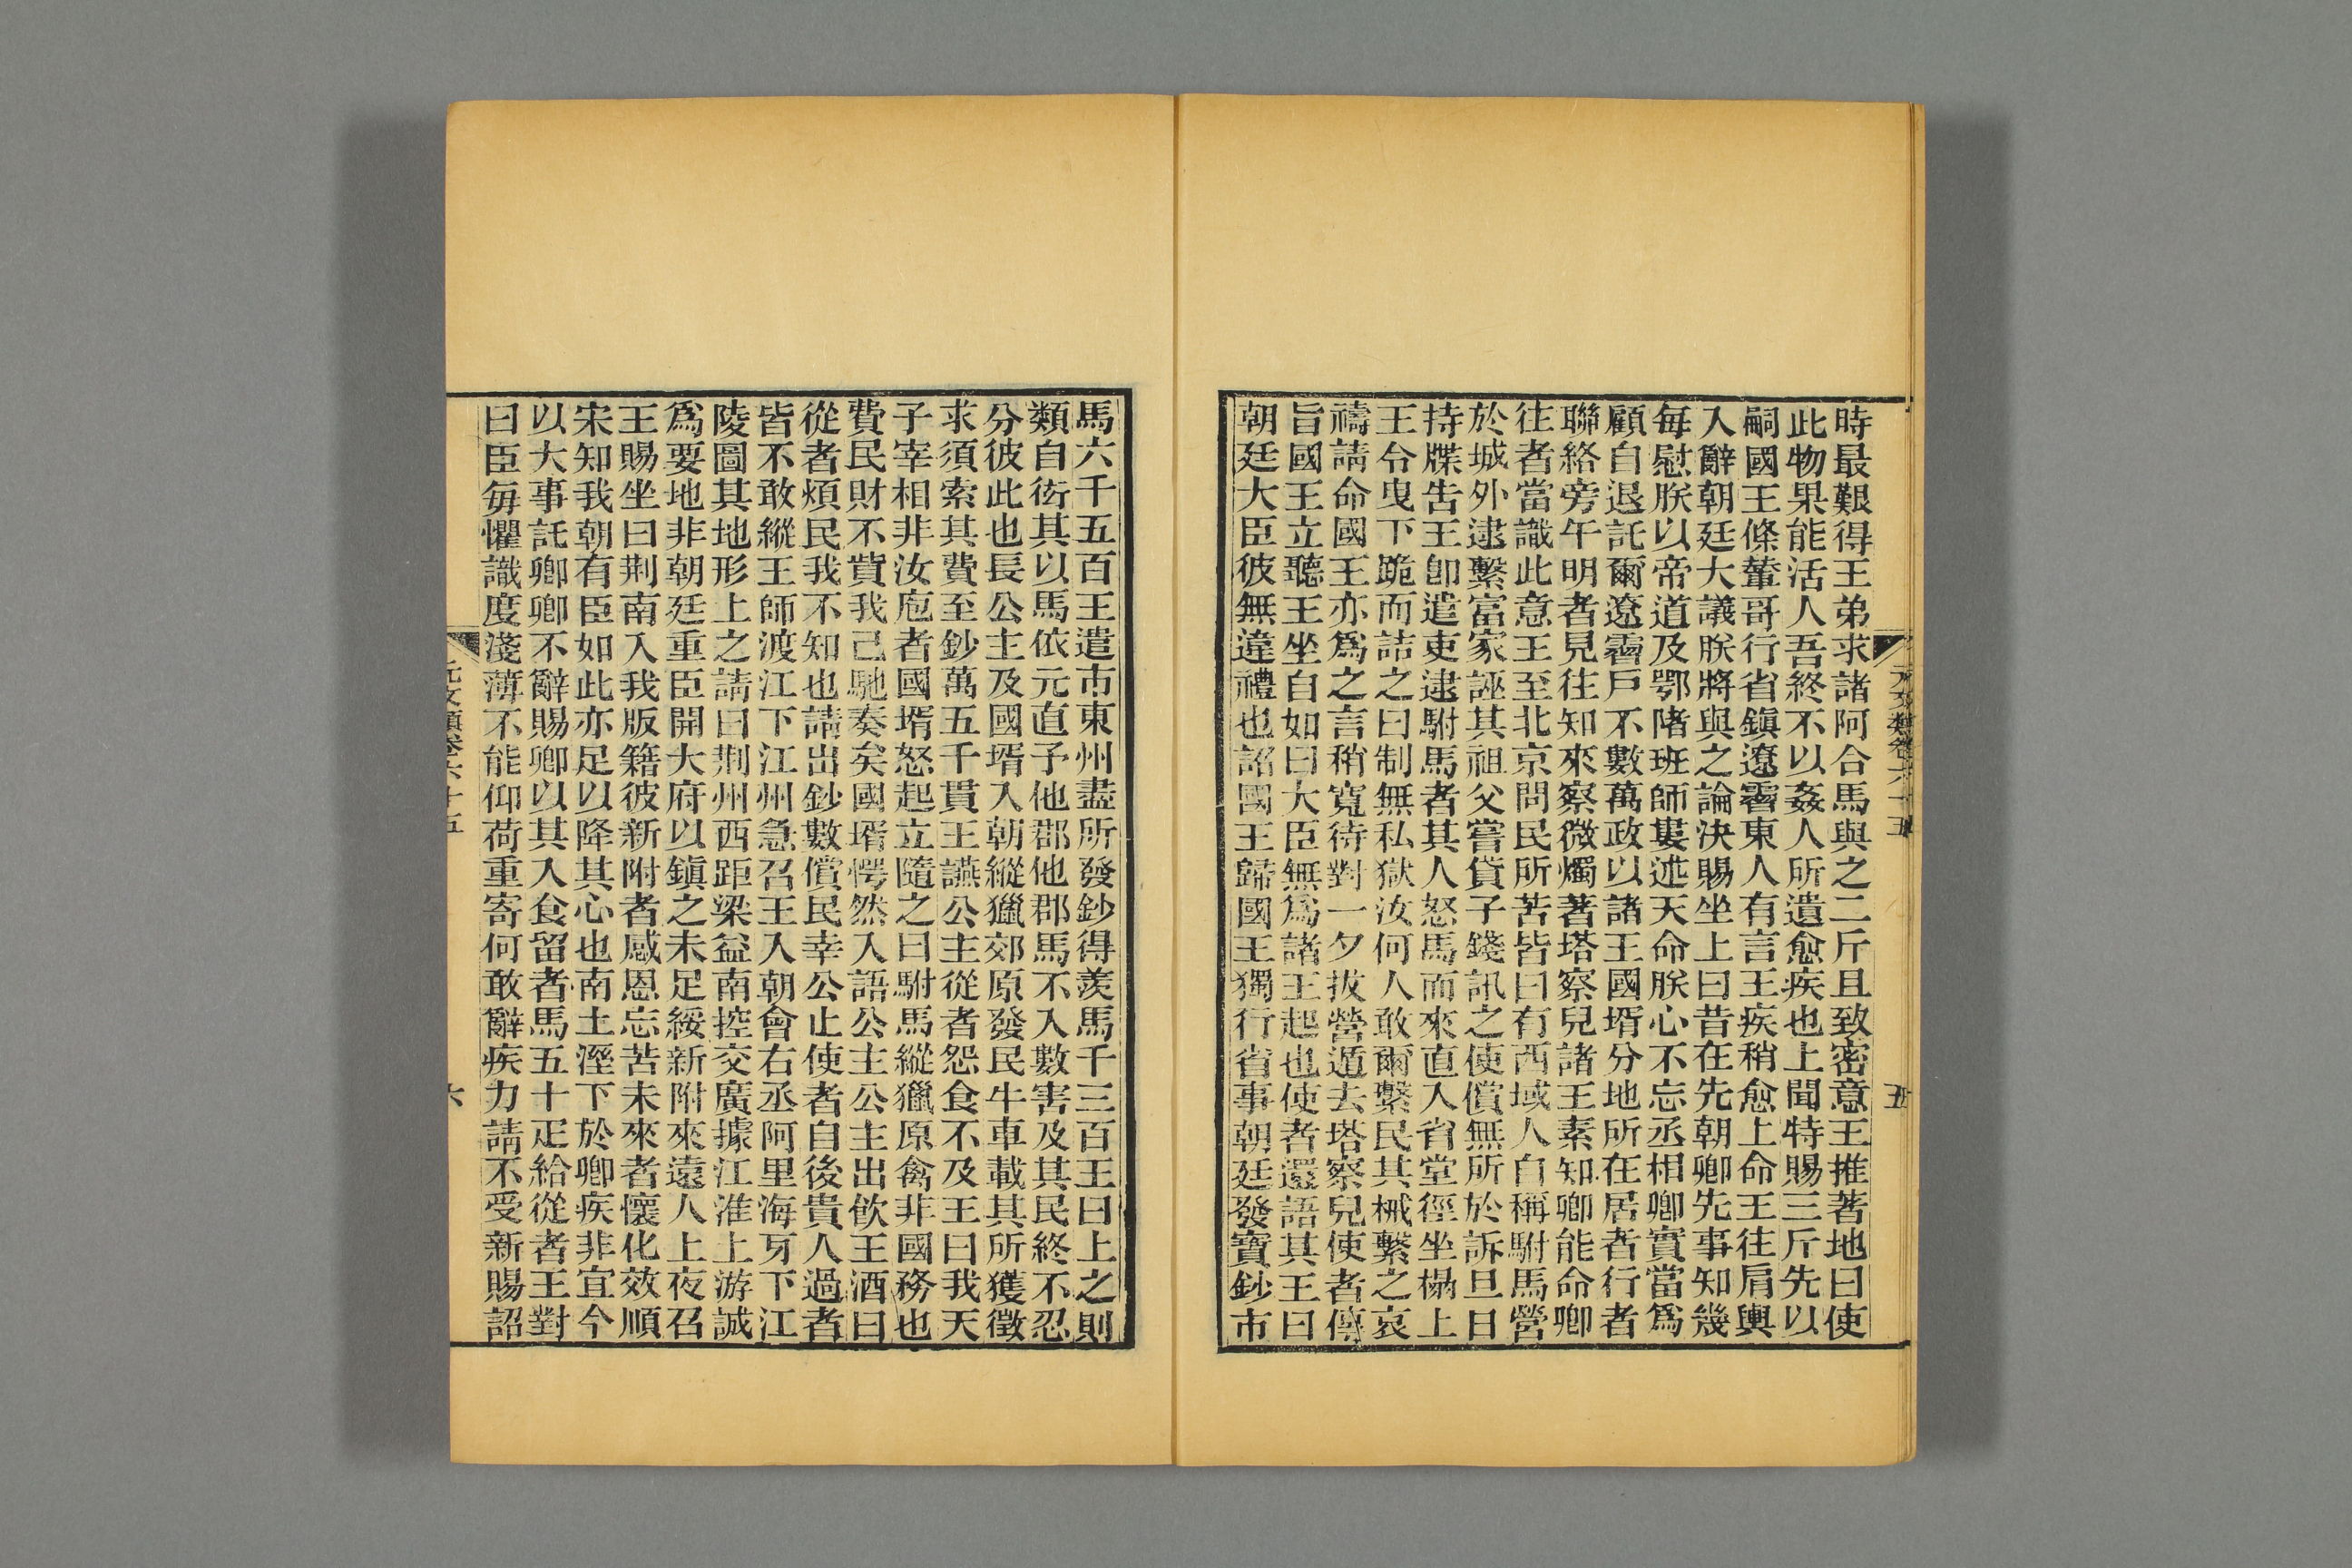 元文類卷六十五
五
時最艱得王弟求諸阿合馬與之二斤且致密意王推著地曰使
此物果能活人吾終不以姦人所遺愈疾也上聞特賜三斤先以
嗣國王條輦哥行省鎮遼霫東人有言王疾稍愈上命王往肩輿
入辭朝廷大議朕將與之論決賜坐上曰昔在先朝卿先事知幾
每慰朕以帝道及鄂啫班師婁述天命朕心不忘丞相卿實當為
顧自退託爾遼霫戸不數萬政以諸王國壻分地所在居者行者
聯絡旁午明者見往知來察微燭著塔察兒諸王素知卿能命卿
往者當識此意王至北京問民所苦皆曰有西域人自稱駙馬營
於城外逮繫富家誣其祖父嘗貸子錢訊之使償無所於訴旦日
持牒告王卽遣吏逮駙馬者其人怒馬而來直入省堂徑坐榻上
王令曳下跪而詰之曰制無私獄汝何人敢爾繫民其械繫之哀
禱請命國王亦為之言稍寬待對一夕拔營遁去塔察兒使者傳
旨國王立聽王坐自如曰大臣無為諸王起也使者還語其王曰
朝廷大臣彼無違禮也詔國王歸國王獨行省事朝廷發寶鈔市
馬六千五百王遣市東州盡所發鈔得羨馬千三百王曰上之則
類自衒其以馬依元直予他郡他郡馬不入數害及其民終不忍
分彼此也長公主及國壻入朝縱獵郊原發民牛車載其所獲徵
求須索其費至鈔萬五千貫王讌公主從者怨食不及王曰我天
子宰相非汝庖者國壻怒起立隨之曰駙馬縱獵原禽非國務也
費民財不貲我已馳奏矣國壻愕然入語公主公主出飲王酒曰
從者煩民我不知也請出鈔數償民幸公止使者自後貴人過者
皆不敢縱王師渡江下江州急召王入朝會右丞阿里海牙下江
陵圖其地形上之請曰荆州西距梁益南控交廣據江淮上游誠
為要地非朝廷重臣開大府以鎮之未足綏新附來遠人上夜召
王賜坐曰荆南入我版籍彼新附者感恩忘苦未來者懷化效順
宋知我朝有臣如此亦足以降其心也南土溼下於卿疾非宜今
以大事託卿卿不辭賜卿以其入食留者馬五十疋給從者王對
曰臣每懼識度淺薄不能仰荷重寄何敢辭疾力請不受新賜詔
元文類卷六十五
六